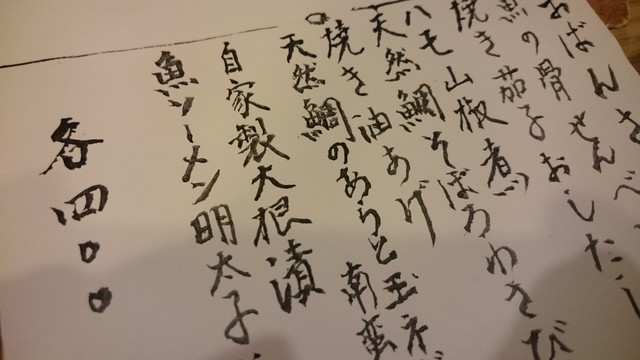 おばんさ
魚の骨せんべ
焼き茄子おしたし
ハモ山椒煮
天然鯛そぼろわさび
焼き油あげ
天然鯛のあらと玉ネ
南蛮
自家製大根漬
魚ソーメン明太子
各四〇〇